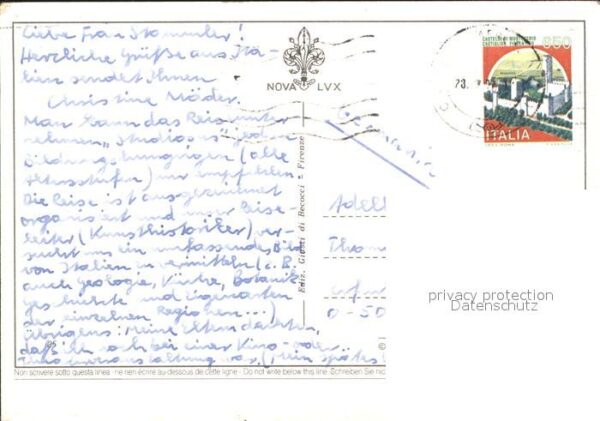 Liebe Frau Stammler!
Herzliche Grüße aus Ita-
lien sendet Ihnen
Christine Mäder.
Man kann das Reiseunter-
nehmen „Studiosus" jedem
Bildungshungrigen (alle
Altersstufen) nur empfehlen.
Die Reise ist ausgezeichnet
organisiert und unser Reise-
leiter (Kunsthistoriker) ver-
sucht uns ein umfassendes Bild
von Italien zu vermitteln (z.B.
auch Geologie, Küche, Botanik
geschichte und Eigenarten
der einzelnen Regionen...)
Übrigens: Meine Eltern dachten,
daß ich noch bei einer Kino- oder
war, (mein spätes!
NOVA LVX
Ediz. Giusti di Becocci - Firenze
CASTELLO DI MONTECCHIO
CASTIGLION FIORENTINO
650
ITALIA
Germania
Adell
Thom
Erfur
0-50
privacy protection
Datenschutz
Non scrivere sotto questa linea - ne rien écrire au dessous de cette ligne - Do not write below this line. Schreiben Sie nic